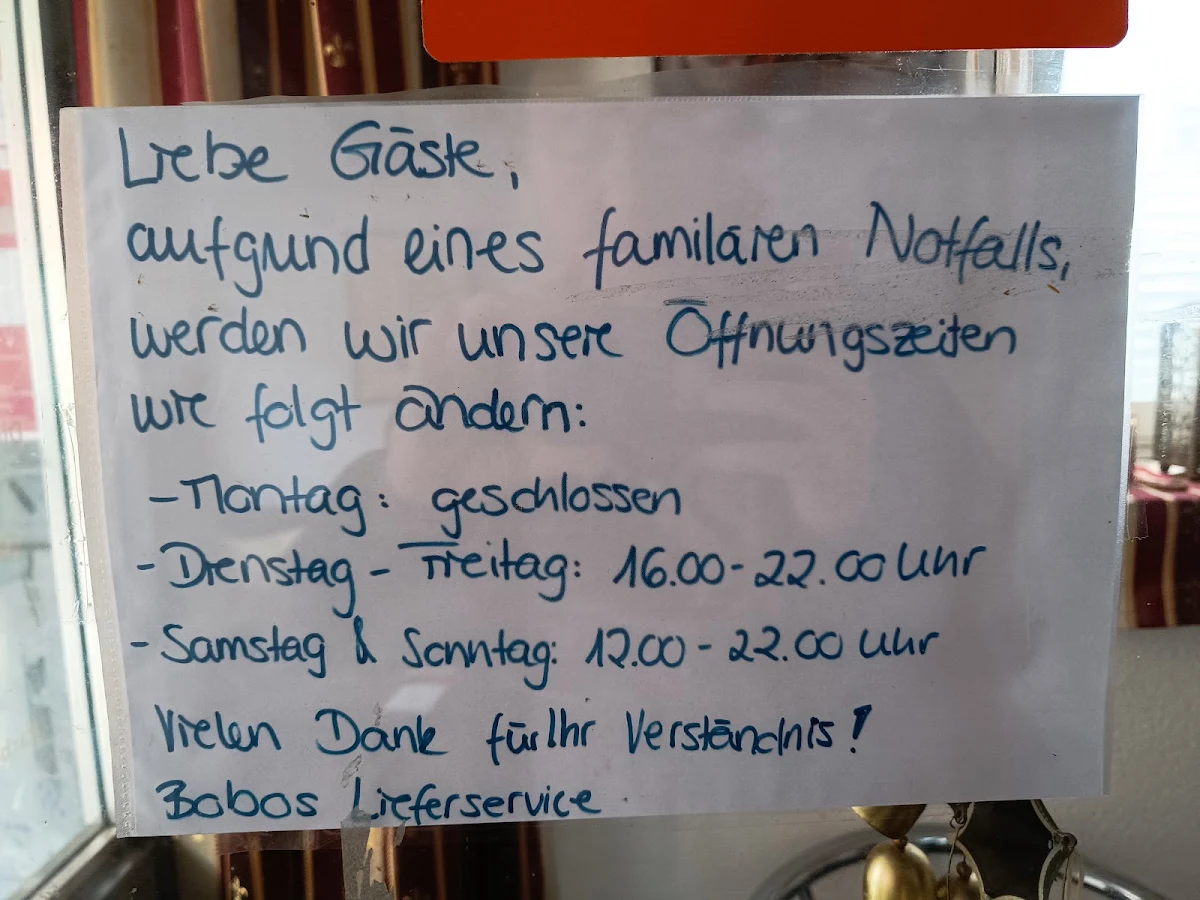 Liebe Gäste,
aufgrund eines familären Notfalls,
werden wir unsere Öffnungszeiten
wie folgt ändern:
- Montag: geschlossen
- Dienstag - Freitag: 16.00 - 22.00 Uhr
- Samstag & Sonntag: 12.00 - 22.00 Uhr
Vielen Dank für Ihr Verständnis!
Bobos Lieferservice